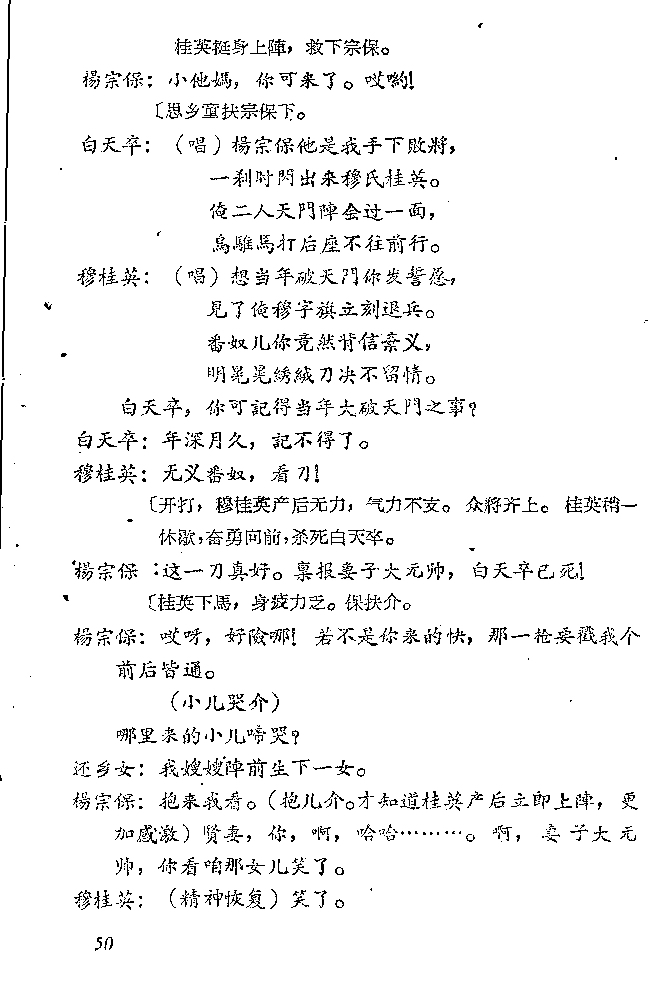 桂英挺身上陣，救下宗保。
楊宗保：小他媽，你可来了。哎喲！
〔思乡童扶宗保下。
白天卒：（唱）楊宗保他是我手下敗將，
一刹时閃出来穆氏桂英。
俺二人天門陣会过一面，
烏騅馬打后座不往前行。
穆桂英：（唱）想当年破天門你发誓愿，
見了俺穆字旗立刻退兵。
番奴儿你竟然背信棄义，
明晃晃綉絨刀决不留情。
白天卒，你可記得当年大破天門之事？
白天卒：年深月久，記不得了。
穆桂英：无义番奴，看刀！
〔开打，穆桂英产后无力，气力不支。众將齐上。桂英稍一
休歇，奋勇向前，杀死白天卒。
楊宗保：这一刀真好。禀报妻子大元帅，白天卒已死！
〔桂英下馬，身疲力乏。保扶介。
楊宗保：哎呀，好險哪！若不是你来的快，那一枪要戳我个
前后皆通。
（小儿哭介）
哪里来的小儿啼哭？
还乡女：我嫂嫂陣前生下一女。
楊宗保：抱来我看。（抱儿介。才知道桂英产后立即上陣，更
加感激）賢妻，你，啊，哈哈………。啊，妻子大元
帅，你看咱那女儿笑了。
穆桂英：（精神恢复）笑了。
50